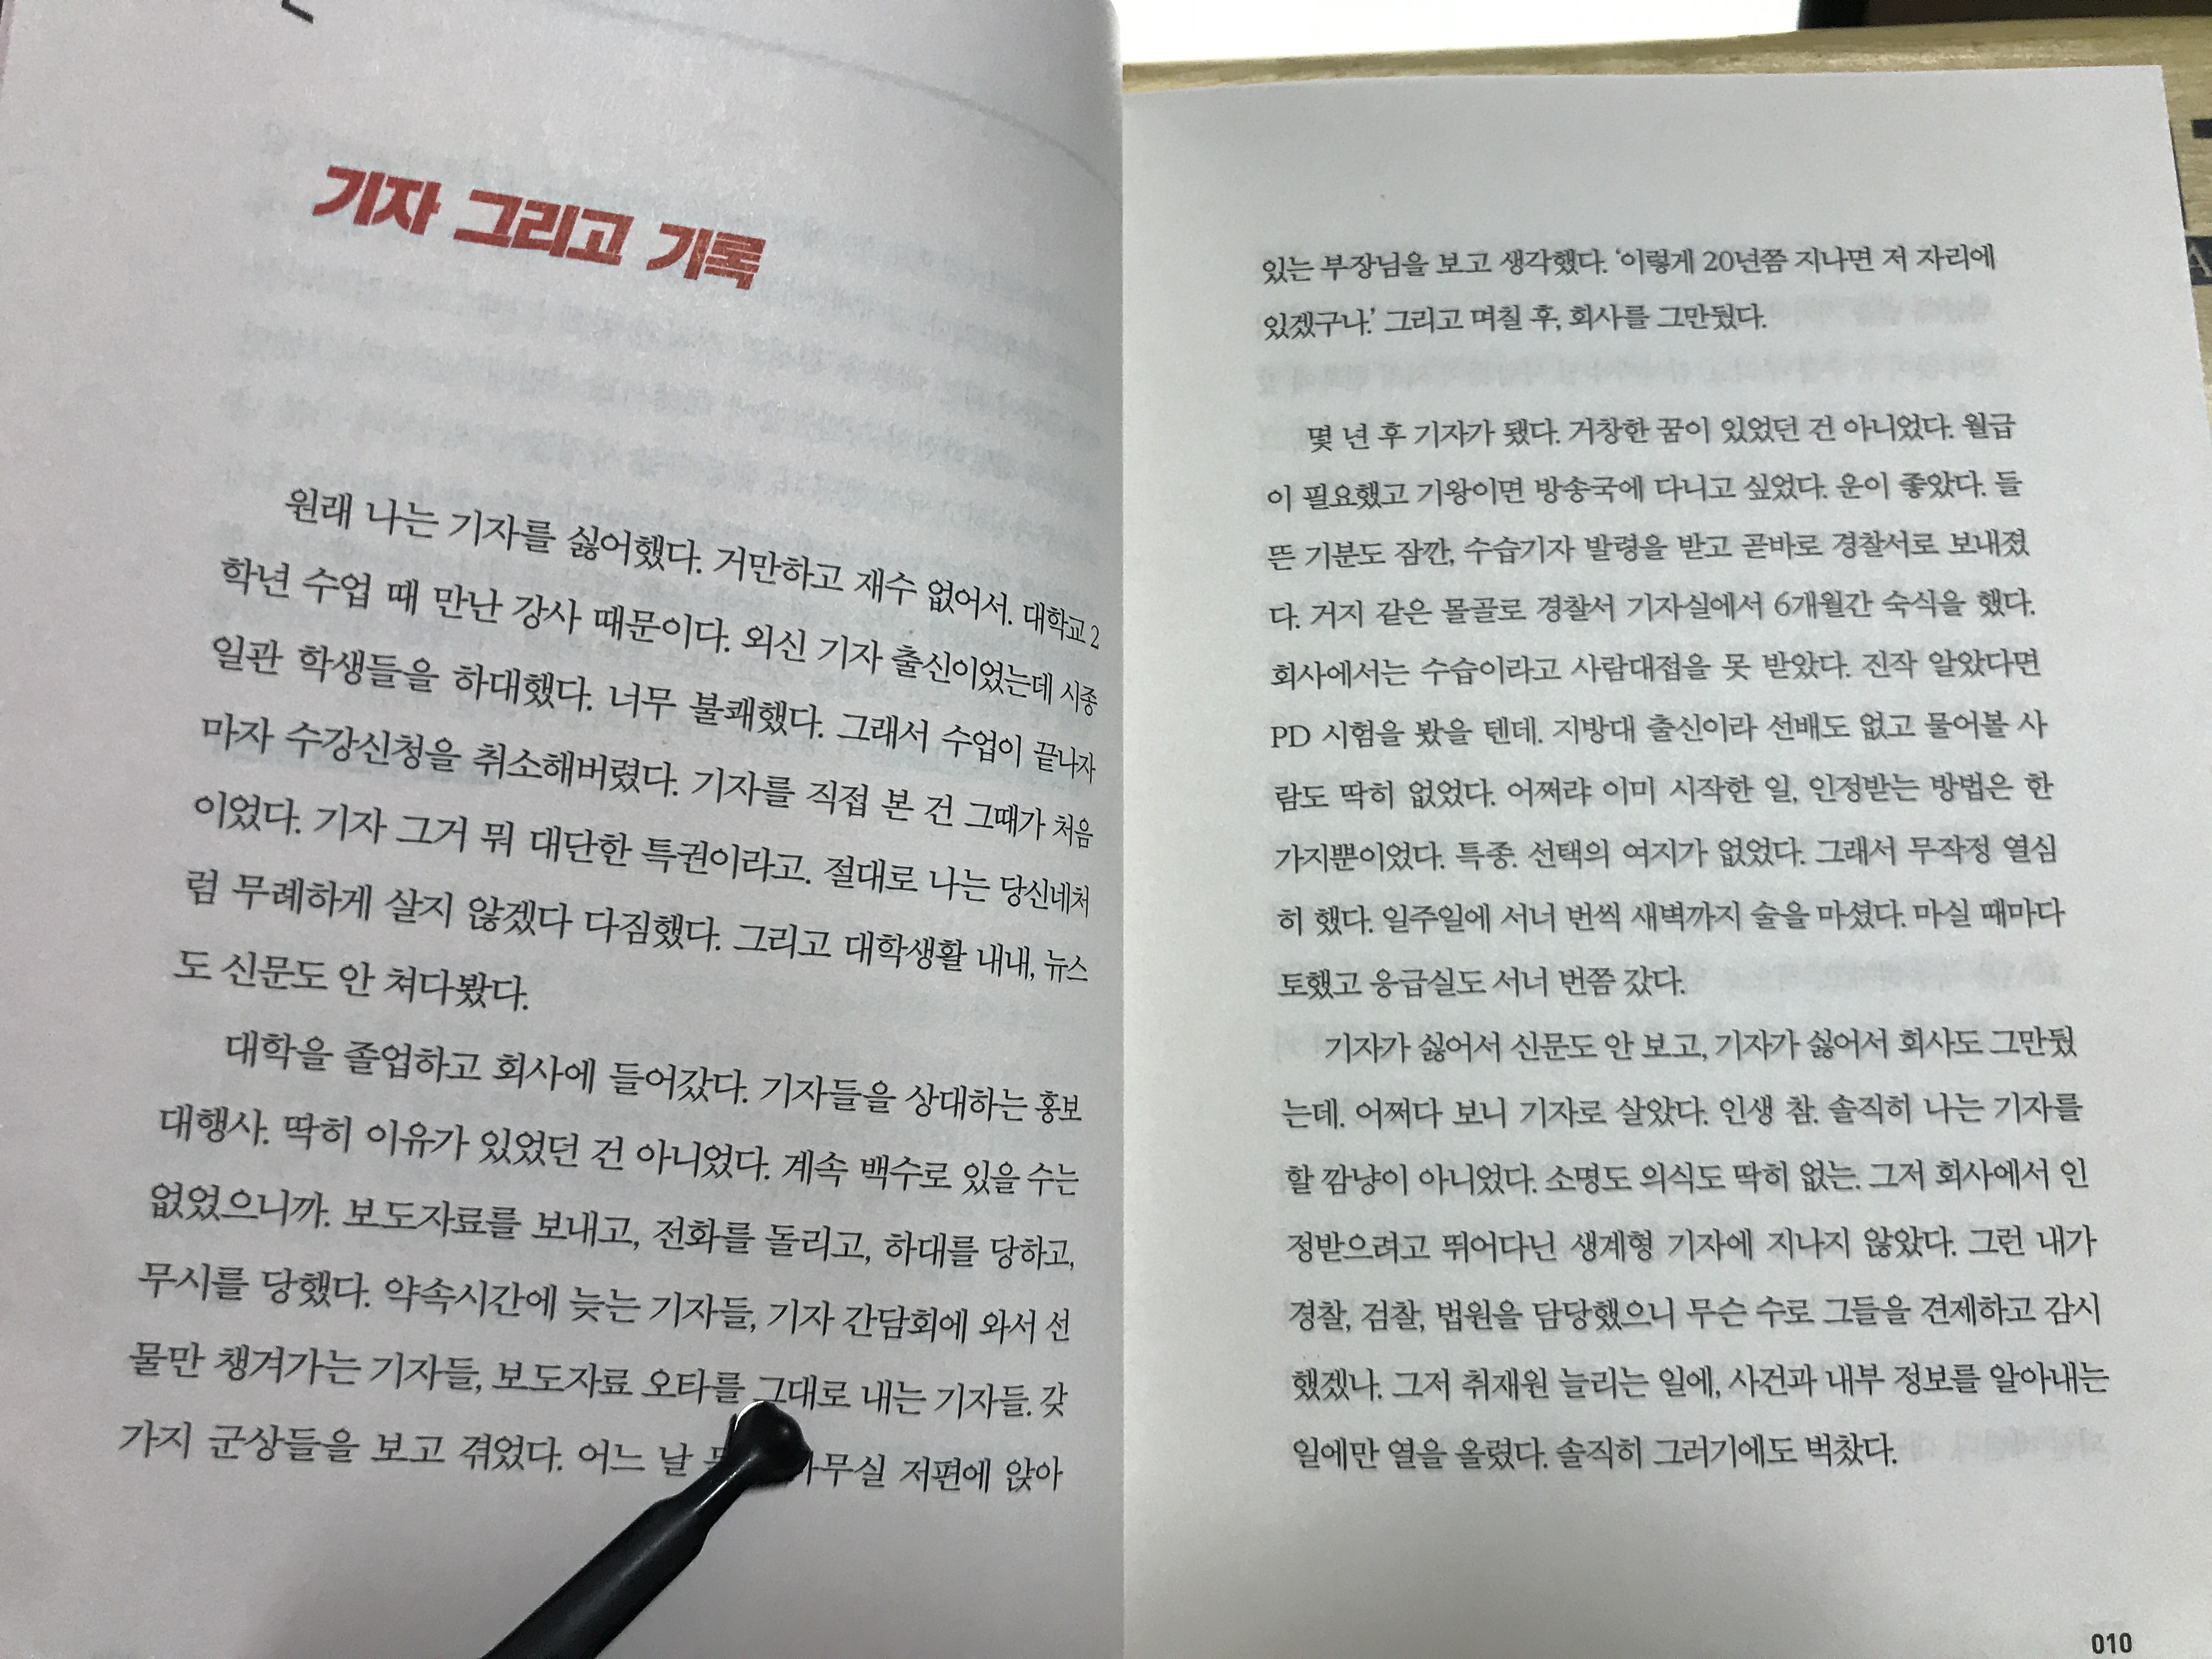 기자 그리고 기록
원래 나는 기자를 싫어했다. 거만하고 재수 없어서. 대학교 2
학년 수업 때 만난 강사 때문이다. 외신 기자 출신이었는데 시종
일관 학생들을 하대했다. 너무 불쾌했다. 그래서 수업이 끝나자
마자 수강신청을 취소해버렸다. 기자를 직접 본 건 그때가 처음
이었다. 기자 그거 뭐 대단한 특권이라고. 절대로 나는 당신네처
럼 무례하게 살지 않겠다 다짐했다. 그리고 대학생활 내내, 뉴스
도 신문도 안 쳐다봤다.
대학을 졸업하고 회사에 들어갔다. 기자들을 상대하는 홍보
대행사. 딱히 이유가 있었던 건 아니었다. 계속 백수로 있을 수는
없었으니까. 보도자료를 보내고, 전화를 돌리고, 하대를 당하고,
무시를 당했다. 약속시간에 늦는 기자들, 기자 간담회에 와서 선
물만 챙겨가는 기자들, 보도자료 오타를 그대로 내는 기자들. 갖
가지 군상들을 보고 겪었다. 어느 날 저편에 앉아
있는 부장님을 보고 생각했다. ‘이렇게 20년쯤 지나면 저 자리에
있겠구나.’ 그리고 며칠 후, 회사를 그만뒀다.
몇 년 후 기자가 됐다. 거창한 꿈이 있었던 건 아니었다. 월급
이 필요했고 기왕이면 방송국에 다니고 싶었다. 운이 좋았다. 들
뜬 기분도 잠깐, 수습기자 발령을 받고 곧바로 경찰서로 보내졌
다. 거지 같은 몰골로 경찰서 기자실에서 6개월간 숙식을 했다.
회사에서는 수습이라고 사람대접을 못 받았다. 진작 알았다면
PD 시험을 봤을 텐데. 지방대 출신이라 선배도 없고 물어볼 사
람도 딱히 없었다. 어쩌랴 이미 시작한 일, 인정받는 방법은 한
가지뿐이었다. 특종. 선택의 여지가 없었다. 그래서 무작정 열심
히 했다. 일주일에 서너 번씩 새벽까지 술을 마셨다. 마실 때마다
토했고 응급실도 서너 번쯤 갔다.
기자가 싫어서 신문도 안 보고, 기자가 싫어서 회사도 그만뒀
는데. 어쩌다 보니 기자로 살았다. 인생 참. 솔직히 나는 기자를
할 깜냥이 아니었다. 소명도 의식도 딱히 없는. 그저 회사에서 인
정받으려고 뛰어다닌 생계형 기자에 지나지 않았다. 그런 내가
경찰, 검찰, 법원을 담당했으니 무슨 수로 그들을 견제하고 감시
했겠나. 그저 취재원 늘리는 일에, 사건과 내부 정보를 알아내는
일에만 열을 올렸다. 솔직히 그러기에도 벅찼다.
010